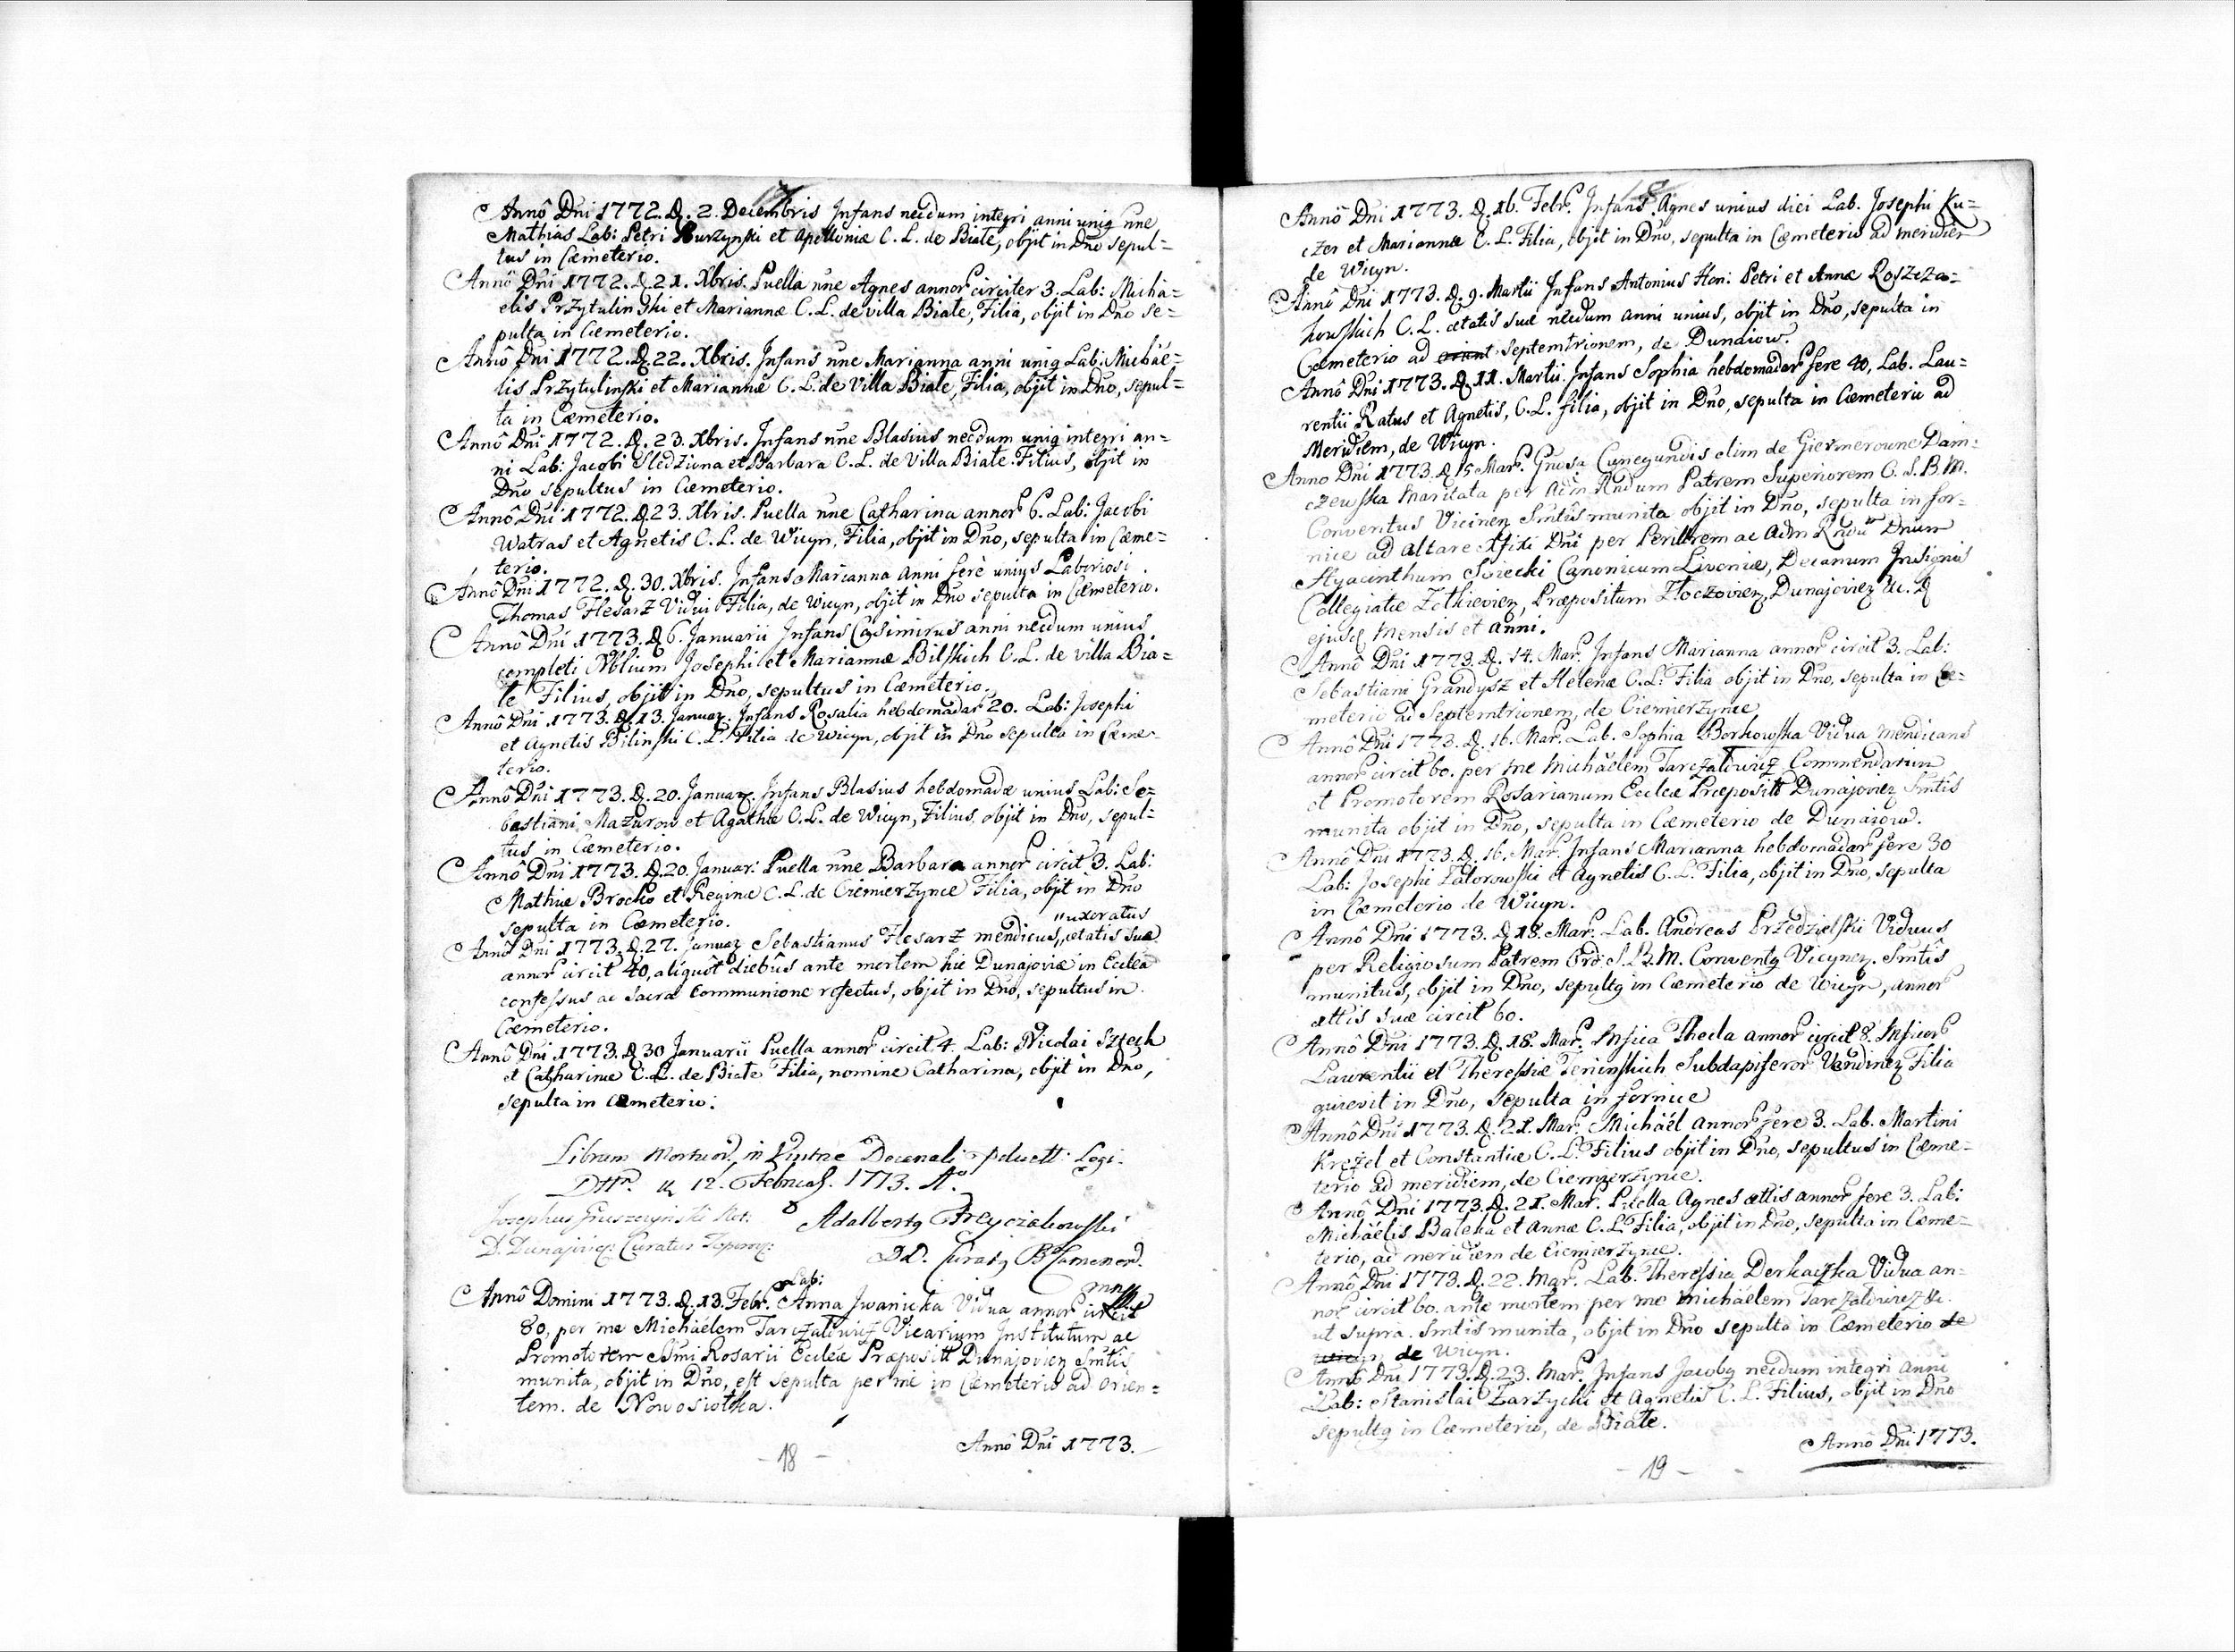 17
Annô Dni 1772. D. 2. Decembris Infans necdum integri anni uniq nne
Mathias Lab: Petri Burzynski et Apolloniæ C. L. de Białe, objit in Dno sepul=
tus in Cæmeterio.
Annô Dni 1772. D. 21. Xbris. Puella nne Agnes annor circiter 3. Lab: Micha=
elis Przytulinski et Mariannæ C. L. de villa Białe, Filia, objit in Dno se=
pulta in Cæmeterio.
Annô Dni 1772. D. 22. Xbris. Infans nne Marianna anni uniq Lab: Michäe=
lis Przytulinski et Mariannæ C. L. de Villa Białe, Filia, objit in Dno, sepul=
ta in Cæmeterio.
Annô Dni 1772. D. 23. Xbris. Infans nne Blasius necdum uniq integri an=
ni Lab: Jacobi Sledziona et Barbara C. L. de Villa Białe Filius, objit in
Dno sepultus in Cæmeterio.
Annô Dni 1772. D. 23. Xbris. Puella nne Catharina annor 6. Lab: Jacobi
Watras et Agnetis C. L. de Wicyn, Filia, objit in Dno, sepulta in Cæme=
terio.
Annô Dni 1772. D. 30. Xbris. Infans Marianna Anni ferè unius Laboriosi
Thomas Flesarz Vidui Filia, de Wicyn, objit in Dno sepulta in Cæmeterio.
Annô Dni 1773. D. 6. Januarii Infans Casimirus anni necdum unius
completi Nblium Josephi et Mariannæ Bilskich C. L. de villa Bia=
łe Filius, objit in Dno, sepultus in Cæmeterio.
Annô Dni 1773. D. 13. Januar. Infans Rosalia hebdomadar 20. Lab: Josephi
et Agnetis Bilinski C. L. Filia de Wicyn, objit in Dno sepulta in Cæme=
terio.
Annô Dni 1773. D. 20. Januar. Infans Blasius hebdomadæ unius Lab: Se=
bastiani Mazurow et Agathæ C. L. de Wicyn, Filius, objit in Dno, sepul=
tus in Cæmeterio.
Annô Dni 1773. D. 20. Januar: Puella nne Barbara annor circit 3. Lab:
Mathiæ Brocko et Reginæ C. L. de Ciemierzynce Filia, objit in Dno
sepulta in Cæmeterio.
"uxoratus
Annô Dni 1773. D. 27. Januar Sebastianus Flesarz mendicus,,ætatis suæ
annor circit 40, aliquôt diebûs ante mortem hic Dunajoviæ in Ecclea
confessus ac sacra Communione refectus, objit in Dno, sepultus in
Cæmeterio.
Annô Dni 1773. D. 30 Januarii Puella annor circit 4. Lab: Nicolai Sztech
et Catharinæ C. L. de Białe Filia, nomine Catharina, objit in Dno,
sepulta in Cæmeterio:
Librum Mortuor. in Decanali
12. Februar. 1773. A°.
Josephus Gruszczynski
Adalbertq
D. Dunajov: Curatus
Lab:
Annô Domini 1773. D. 13. Febr. Anna Jwanicka Vidua annor circit
80, per me Michäelem Tarczałowicz Vicarium Institutum ac
Promotorem Ssmi Rosarii Eccleæ Præpositt Dunajovien Smtis
munita, objit in Dno, est sepulta per me in Cæmeterio ad orien=
tem. de Nowosiołka.
Annô Dni 1773.
- 18 -
18
Annô Dni 1773. D. 16. Febr. Infans Agnes unius diei Lab. Josephi Ku=
czer et Mariannæ C. L. Filia, objit in Dno, sepulta in Cæmeterio ad meridiem
de Wicyn.
Annô Dni 1773. D. 9. Martii Infans Antonius Hon: Petri et Annæ Roszcza=
howskich C. L. ætatis suæ necdum anni unius, objit in Dno, sepulta in
Cæmeterio ad orient septemtrionem, de Dunaiow.
Annô Dni 1773. D. 11. Martii Infans Sophia hebdomadar fere 40, Lab. Lau=
rentii Ratus et Agnetis, C. L. filia, objit in Dno, sepulta in Cæmeterio ad
Meridiem, de Wicyn.
Anno Dni 1773. D. 15 Mar. Gnosa Cunegundis olim de Giermerowne Dam:
czewska Maritata per Adm Rndum Patrem Superiorem O. S. B. M.
Conventus Vicinen Smtis munita objit in Dno, sepulta in for=
nice ad altare Xfixi Dni per Perillrem ac Adm Rndum Dnum
Hyacinthum Sviecki Canonicum Livoniæ, Decanum Insignis
Collegiatæ Zołkievien, Præpositum Złoczovien, Dunajovien &c. D
ejusq Mensis et anni.
Annô Dni 1773. D. 14. Mar. Infans Marianna annor circit 3. Lab:
Sebastiani Grandysz et Helenæ C. L. Filia objit in Dno, sepulta in Cæ=
meterio ad Septemtrionem, de Ciemierzynce
Annô Dni 1773. D. 16. Mar. Lab. Sophia Borkowska Vidua Mendicans
annor circit 60. per me Michäelem Tarczałowicz Commendarium
et Promotorem Rosarianum Eccleæ Præpositt Dunajovien Smtis
munita objit in Dno, sepulta in Cæmeterio de Dunaiow.
Annô Dni 1773. D. 16. Mar. Infans Marianna hebdomadar fere 30
Lab: Josephi Zalorowski et Agnetis C. L. Filia, objit in Dno, sepulta
in Cæmeterio de Wicyn.
Annô Dni 1773. D. 18. Mar. Lab. Andreas Przedzielski Viduus
per Religiosum Patrem Ord: S. B. M. Conventq Vicynen. Smtis
munitus, objit in Dno, sepultq in Cæmeterio de Wicyn, annor
ættis suæ circit 60.
Annô Dni 1773. D. 18. Mar. Mfica Thecla annor circit 8. Mficor
Laurentii et Theressiæ Jeninskich Subdapiferor Vendinen Filia
quievit in Dno, sepulta in fornice
Annô Dni 1773. D. 21. Mar. Michäel annor fere 3. Lab. Martini
Kręzel et Constantiæ C. L. Filius objit in Dno, sepultus in Cæme=
terio ad meridiem, de Ciemierzynce.
Annô Dni 1773. D. 21. Mar. Puella Agnes ættis annor fere 3. Lab:
Michäelis Baleka et Annæ C. L. Filia, objit in Dno, sepulta in Cæme=
terio, ad meridiem de Ciemierzynce.
Annô Dni 1773. D. 22. Mar. Lab. Theressia Derkaczka Vidua an=
nor circit 60. ante mortem per me Michäelem Tarczałowicz &c.
ut supra. Smtis munita, objit in Dno sepulta in Cæmeterio de
Wicyn de Wicyn.
Annô Dni 1773. D. 23. Mar. Infans Jacobq necdum integri anni
Lab: Stanislai Zarzycki et Agnetis C. L. Filius, objit in Dno
sepultq in Cæmeterio, de Białe.
Annô Dni 1773.
- 19 -